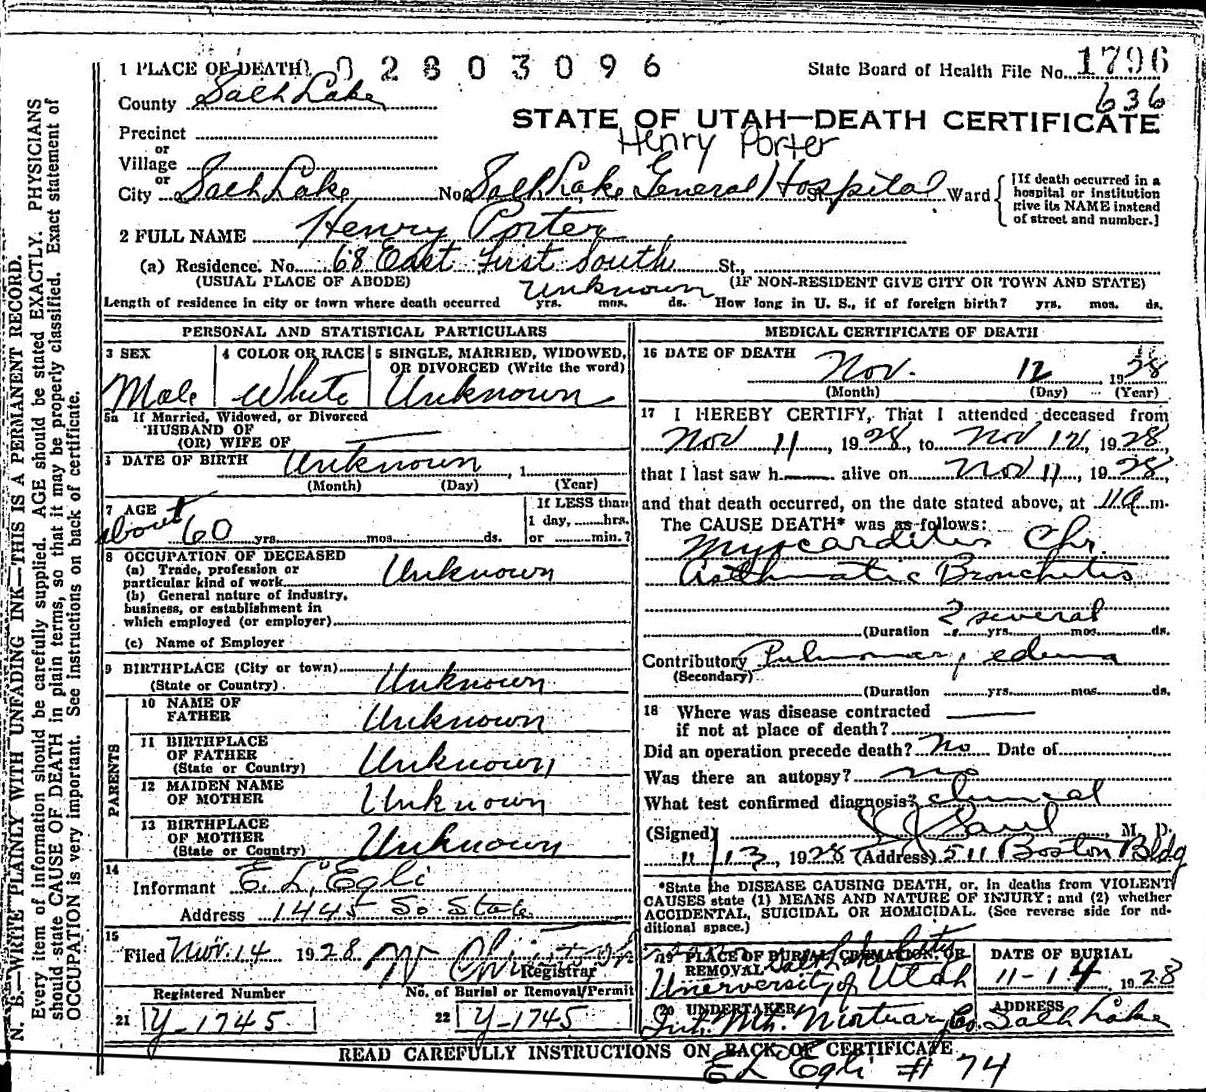 1 PLACE OF DEATH 02803096 State Board of Health File No. 1796
County Salt Lake 636
STATE OF UTAH—DEATH CERTIFICATE
Precinct
or
Henry Porter
Village
or
City Salt Lake No. Salt Lake General Hospital St., Ward
[If death occurred in a hospital or institution give its NAME instead of street and number.]
2 FULL NAME Henry Porter
(a) Residence. No. 68 East First South St.,
(USUAL PLACE OF ABODE) (IF NON-RESIDENT GIVE CITY OR TOWN AND STATE)
Length of residence in city or town where death occurred Unknown yrs. mos. ds. How long in U. S., if of foreign birth? yrs. mos. ds.
PERSONAL AND STATISTICAL PARTICULARS
3 SEX
Male
4 COLOR OR RACE
White
5 SINGLE, MARRIED, WIDOWED,
OR DIVORCED (Write the word)
Unknown
5a If Married, Widowed, or Divorced
HUSBAND OF
(OR) WIFE OF
6 DATE OF BIRTH Unknown , 1
(Month) (Day) (Year)
7 AGE
about 60 yrs. mos. ds.
If LESS than
1 day, hrs.
or min.?
8 OCCUPATION OF DECEASED
(a) Trade, profession or
particular kind of work Unknown
(b) General nature of industry,
business, or establishment in
which employed (or employer)
(c) Name of Employer
9 BIRTHPLACE (City or town)
(State or Country) Unknown
PARENTS
10 NAME OF
FATHER Unknown
11 BIRTHPLACE
OF FATHER
(State or Country) Unknown
12 MAIDEN NAME
OF MOTHER Unknown
13 BIRTHPLACE
OF MOTHER
(State or Country) Unknown
14
Informant E. L. Egli
Address 1445 So. State
15
Filed Nov. 14 1928
Registrar
Registered Number No. of Burial or Removal/Permit
21 Y-1745 22 Y-1745
MEDICAL CERTIFICATE OF DEATH
16 DATE OF DEATH
Nov. 12 1928
(Month) (Day) (Year)
17 I HEREBY CERTIFY, That I attended deceased from
Nov 11, 1928, to Nov 12, 1928,
that I last saw h alive on Nov 11, 1928,
and that death occurred, on the date stated above, at 11 a m.
The CAUSE DEATH* was as follows:
Myocarditis Chr.
Asthmatic Bronchitis
? several
(Duration yrs. mos. ds.
Contributory Pulmonary edema
(Secondary)
(Duration yrs. mos. ds.
18 Where was disease contracted
if not at place of death?
Did an operation precede death? No Date of
Was there an autopsy? no
What test confirmed diagnosis? clinical
(Signed) , M. D.
11/13, 1928 (Address) 511 Boston Bldg
*State the DISEASE CAUSING DEATH, or, in deaths from VIOLENT
CAUSES state (1) MEANS AND NATURE OF INJURY; and (2) whether
ACCIDENTAL, SUICIDAL OR HOMICIDAL. (See reverse side for ad-
ditional space.)
19 PLACE OF BURIAL, CREMATION, OR
REMOVAL Salt Lake City
University of Utah
DATE OF BURIAL
11-14 1928
20 UNDERTAKER
Int. Mt. Mortuary Co.
ADDRESS
Salt Lake
READ CAREFULLY INSTRUCTIONS ON BACK OF CERTIFICATE
E L Egli # 74
N. B.—WRITE PLAINLY WITH UNFADING INK—THIS IS A PERMANENT RECORD.
Every item of information should be carefully supplied. AGE should be stated EXACTLY. PHYSICIANS
should state CAUSE OF DEATH in plain terms, so that it may be properly classified. Exact statement of
OCCUPATION is very important. See instructions on back of certificate.